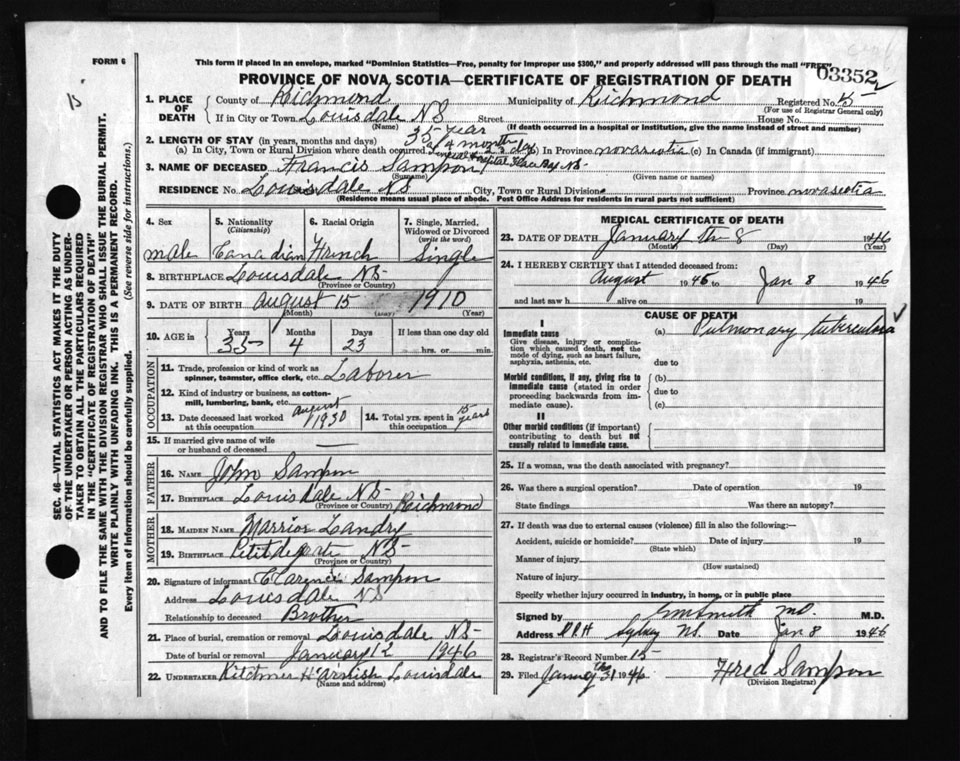 FORM 6
This form if placed in an envelope, marked "Dominion Statistics—Free, penalty for improper use $300," and properly addressed will pass through the mail "FREE"
PROVINCE OF NOVA SCOTIA—CERTIFICATE OF REGISTRATION OF DEATH
03352
15
SEC. 46—VITAL STATISTICS ACT MAKES IT THE DUTY
OF THE UNDERTAKER OR PERSON ACTING AS UNDER-
TAKER TO OBTAIN ALL THE PARTICULARS REQUIRED
IN THE "CERTIFICATE OF REGISTRATION OF DEATH"
AND TO FILE THE SAME WITH THE DIVISION REGISTRAR WHO SHALL ISSUE THE BURIAL PERMIT.
WRITE PLAINLY WITH UNFADING INK. THIS IS A PERMANENT RECORD.
Every item of Information should be carefully supplied. (See reverse side for instructions.)
1. PLACE OF DEATH
County of Richmond Municipality of Richmond Registered No.
(For use of Registrar General only)
If in City or Town Louisdale NS Street House No.
(Name) (If death occurred in a hospital or institution, give the name instead of street and number)
2. LENGTH OF STAY (in years, months and days) 35 year
(a) In City, Town or Rural Division where death occurred (b) In Province novascotia (c) In Canada (if immigrant)
3. NAME OF DECEASED Francis Sampson
(Surname) (Given name or names)
RESIDENCE No. Louisdale NS City, Town or Rural Division Province novascotia
(Residence means usual place of abode. Post Office Address for residents in rural parts not sufficient)
4. Sex
male
5. Nationality
(Citizenship)
Canadian
6. Racial Origin
French
7. Single, Married, Widowed or Divorced
(write the word)
Single
8. BIRTHPLACE Louisdale NS
(Province or Country)
9. DATE OF BIRTH august 15 1910
(Month) (Day) (Year)
10. AGE in
Years Months Days If less than one day old
35 4 23 hrs. or min.
OCCUPATION
11. Trade, profession or kind of work as
spinner, teamster, office clerk, etc. Laborer
12. Kind of industry or business, as cotton-
mill, lumbering, bank, etc.
13. Date deceased last worked
at this occupation august 1930
14. Total yrs. spent in
this occupation 15 years
15. If married give name of wife
or husband of deceased —
FATHER
16. NAME John Sampson
17. BIRTHPLACE Louisdale NS Richmond
(Province or Country)
MOTHER
18. MAIDEN NAME Landry
19. BIRTHPLACE NS
(Province or Country)
20. Signature of informant Clarence Sampson
Address Louisdale NS
Relationship to deceased Brother
21. Place of burial, cremation or removal Louisdale NS
Date of burial or removal January 12 1946
22. UNDERTAKER Louisdale
(Name and address)
MEDICAL CERTIFICATE OF DEATH
23. DATE OF DEATH January th 8 1946
(Month) (Day) (Year)
24. I HEREBY CERTIFY that I attended deceased from:
August 1945 to Jan 8 1946
and last saw h alive on 19
CAUSE OF DEATH
I
Immediate cause (a) Pulmonary tuberculosis
Give disease, injury or complica-
tion which caused death, not the
mode of dying, such as heart failure,
asphyxia, asthenia, etc.
due to
Morbid conditions, if any, giving rise to (b)
immediate cause (stated in order due to
proceeding backwards from im-
mediate cause). (c)
II
Other morbid conditions (if important)
contributing to death but not
causally related to immediate cause.
25. If a woman, was the death associated with pregnancy?
26. Was there a surgical operation? Date of operation 19
State findings Was there an autopsy?
27. If death was due to external causes (violence) fill in also the following:—
Accident, suicide or homicide? Date of injury 19
(State which)
Manner of injury
(How sustained)
Nature of injury
Specify whether injury occurred in industry, in home, or in public place
Signed by Smith MD. M.D.
Address Sydney NS. Date Jan 8 1946
28. Registrar's Record Number 15
29. Filed 31 1946 Fred Sampson
(Division Registrar)